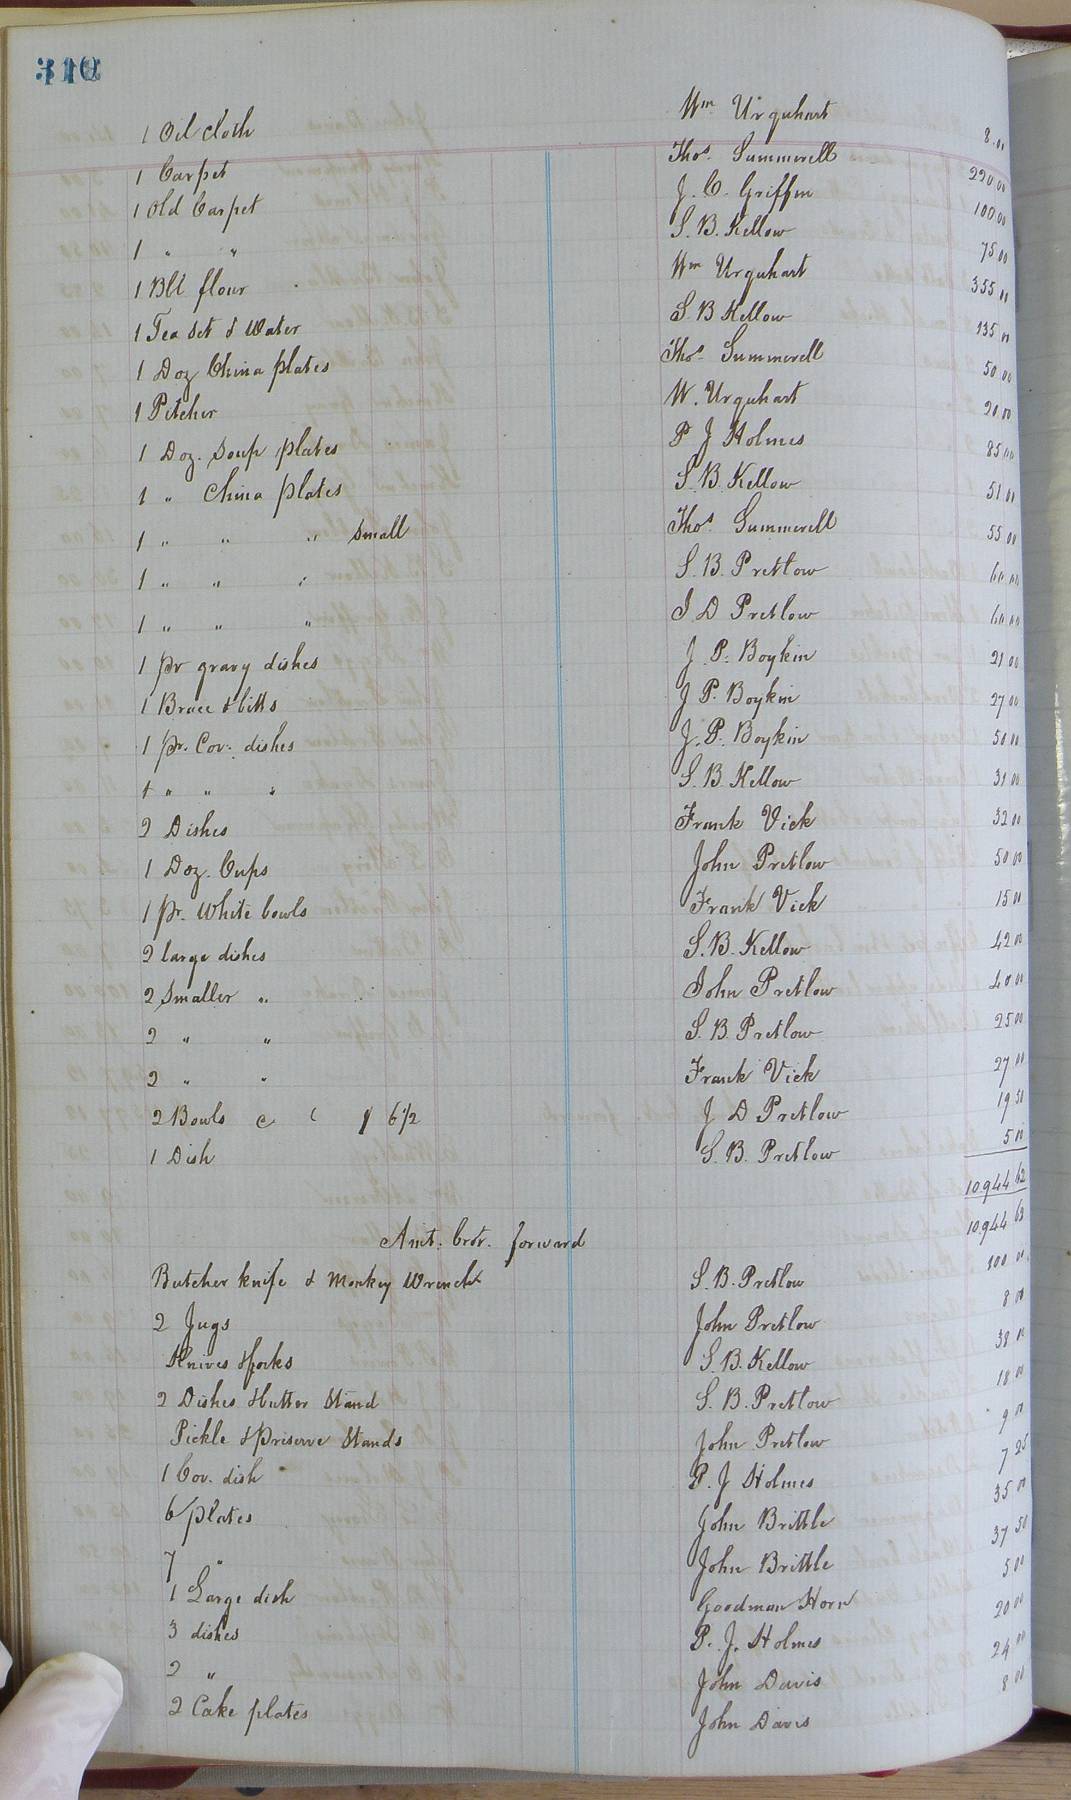 310
1 Oil cloth Wm Urquhart 8.00
1 Carpet Thos. Summerell 220 00
1 Old Carpet J. C. Griffin 100 00
1 " " S. B. Kellow 75 00
1 Bll flour Wm Urquhart 355 00
1 Tea Set & Water S. B Kellow 135 00
1 Doz China plates Thos. Summerell 50 00
1 Pitcher W. Urquhart 20 00
1 Doz. Soup plates P J Holmes 85 00
1 " China plates S. B. Kellow 51 00
1 " " " Small Thos. Summerell 55 00
1 " " " S. B. Pretlow 60 00
1 " " " J D Pretlow 60 00
1 pr gravy dishes J. P. Boykin 21 00
1 Brace & bitts J P. Boykin 27 00
1 pr. Cov. dishes J. P. Boykin 50 00
1 " " " S. B Kellow 31 00
2 Dishes Frank Vick 32 00
1 Doz. Cups John Pretlow 50 00
1 pr. White bowls Frank Vick 15 00
2 large dishes S. B. Kellow 42 00
2 Smaller " John Pretlow 40 00
2 " " S. B. Pretlow 25 00
2 " " Frank Vick 27 00
2 Bowls 6 1/2 J D Pretlow 19 50
1 Dish S. B. Pretlow 5 00
10944 62
Amt. brot. forward 10944 62
Butcher knife & Monkey Wrench S. B. Pretlow 100 00
2 Jugs John Pretlow 8 00
Knives & forks S. B. Kellow 38 00
2 Dishes & butter Stand S. B. Pretlow 18 00
Pickle & Priserve Stands John Pretlow 9 00
1 Cov. dish P. J Holmes 7 25
6 plates John Brittle 35 00
7 " John Brittle 37 50
1 Large dish Goodman Horn 5 00
3 dishes P. J. Holmes 20 00
2 " John Davis 24 00
2 Cake plates John Davis 8 00